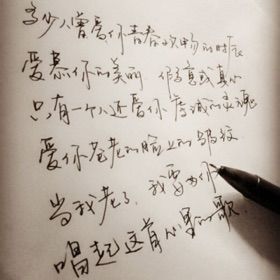 多少人曾爱你青春欢畅的时辰
爱慕你的美丽 假意或真心
只有一个人还爱你虔诚的灵魂
爱你苍老的脸上的皱纹
当我老了 我要为你
唱起这首心里的歌